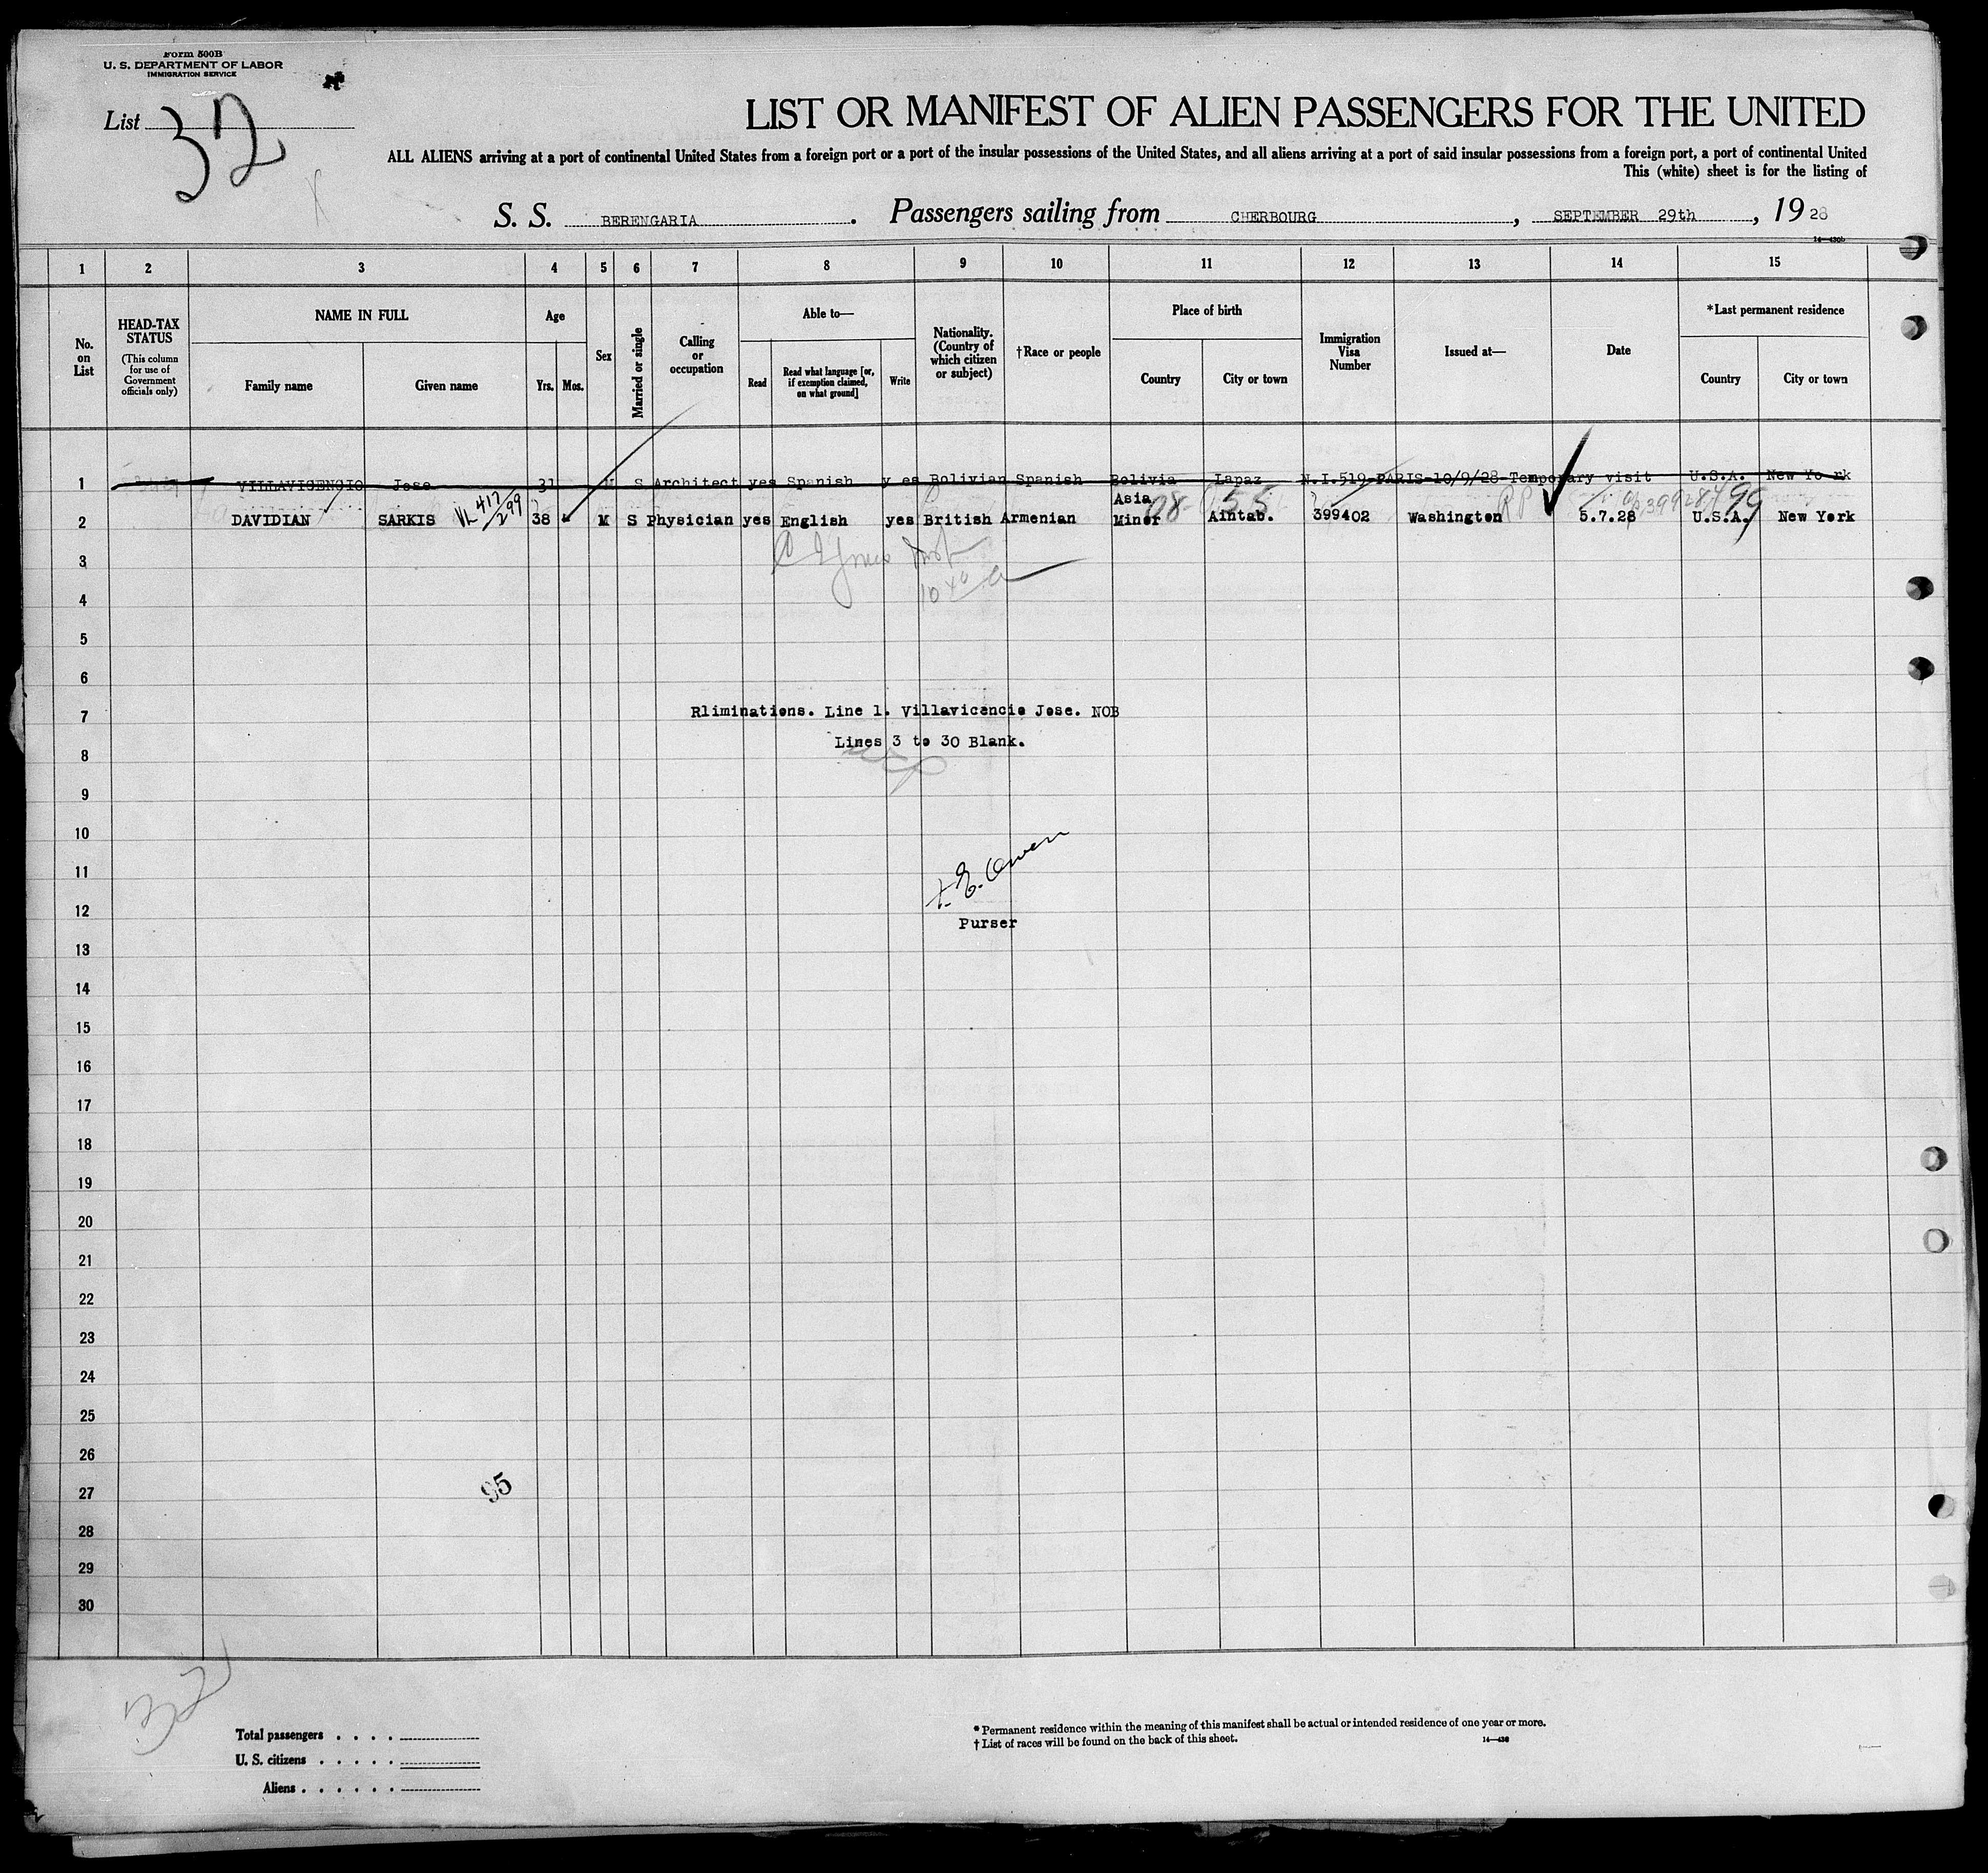 Form 500B
U. S. DEPARTMENT OF LABOR
IMMIGRATION SERVICE
List 32
LIST OR MANIFEST OF ALIEN PASSENGERS FOR THE UNITED
ALL ALIENS arriving at a port of continental United States from a foreign port or a port of the insular possessions of the United States, and all aliens arriving at a port of said insular possessions from a foreign port, a port of continental United
This (white) sheet is for the listing of
S. S. BERENGARIA. Passengers sailing from CHERBOURG, SEPTEMBER 29th, 19 28
1 2 3 4 5 6 7 8 9 10 11 12 13 14 15
No. on List
HEAD-TAX STATUS
(This column for use of Government officials only)
NAME IN FULL
Family name Given name
Age
Yrs. Mos.
Sex
Married or single
Calling or occupation
Able to—
Read
Read what language [or, if exemption claimed, on what ground]
Write
Nationality. (Country of which citizen or subject)
†Race or people
Place of birth
Country City or town
Immigration Visa Number
Issued at—
Date
*Last permanent residence
Country City or town
1 VILLAVICENCIO Jose 31 M S Architect yes Spanish y es Bolivian Spanish Bolivia Lapaz N.I.519-PARIS-10/9/28-Temporary visit U.S.A. New Yo rk
2 DAVIDIAN SARKIS VL 417/299 38 M S Physician yes English yes British Armenian Asia Minor Aintab. 399402 Washington RP 5.7.28 U.S.A. New York
3
4
5
6
7 Rliminations. Line 1. Villavicencio Jose. NOB
Lines 3 to 30 Blank.
8
9
10
11
Owen
12
Purser
13
14
15
16
17
18
19
20
21
22
23
24
25
26
27 95
28
29
30
32
Total passengers . . . .
U. S. citizens . . . . .
Aliens . . . . . .
* Permanent residence within the meaning of this manifest shall be actual or intended residence of one year or more.
† List of races will be found on the back of this sheet.